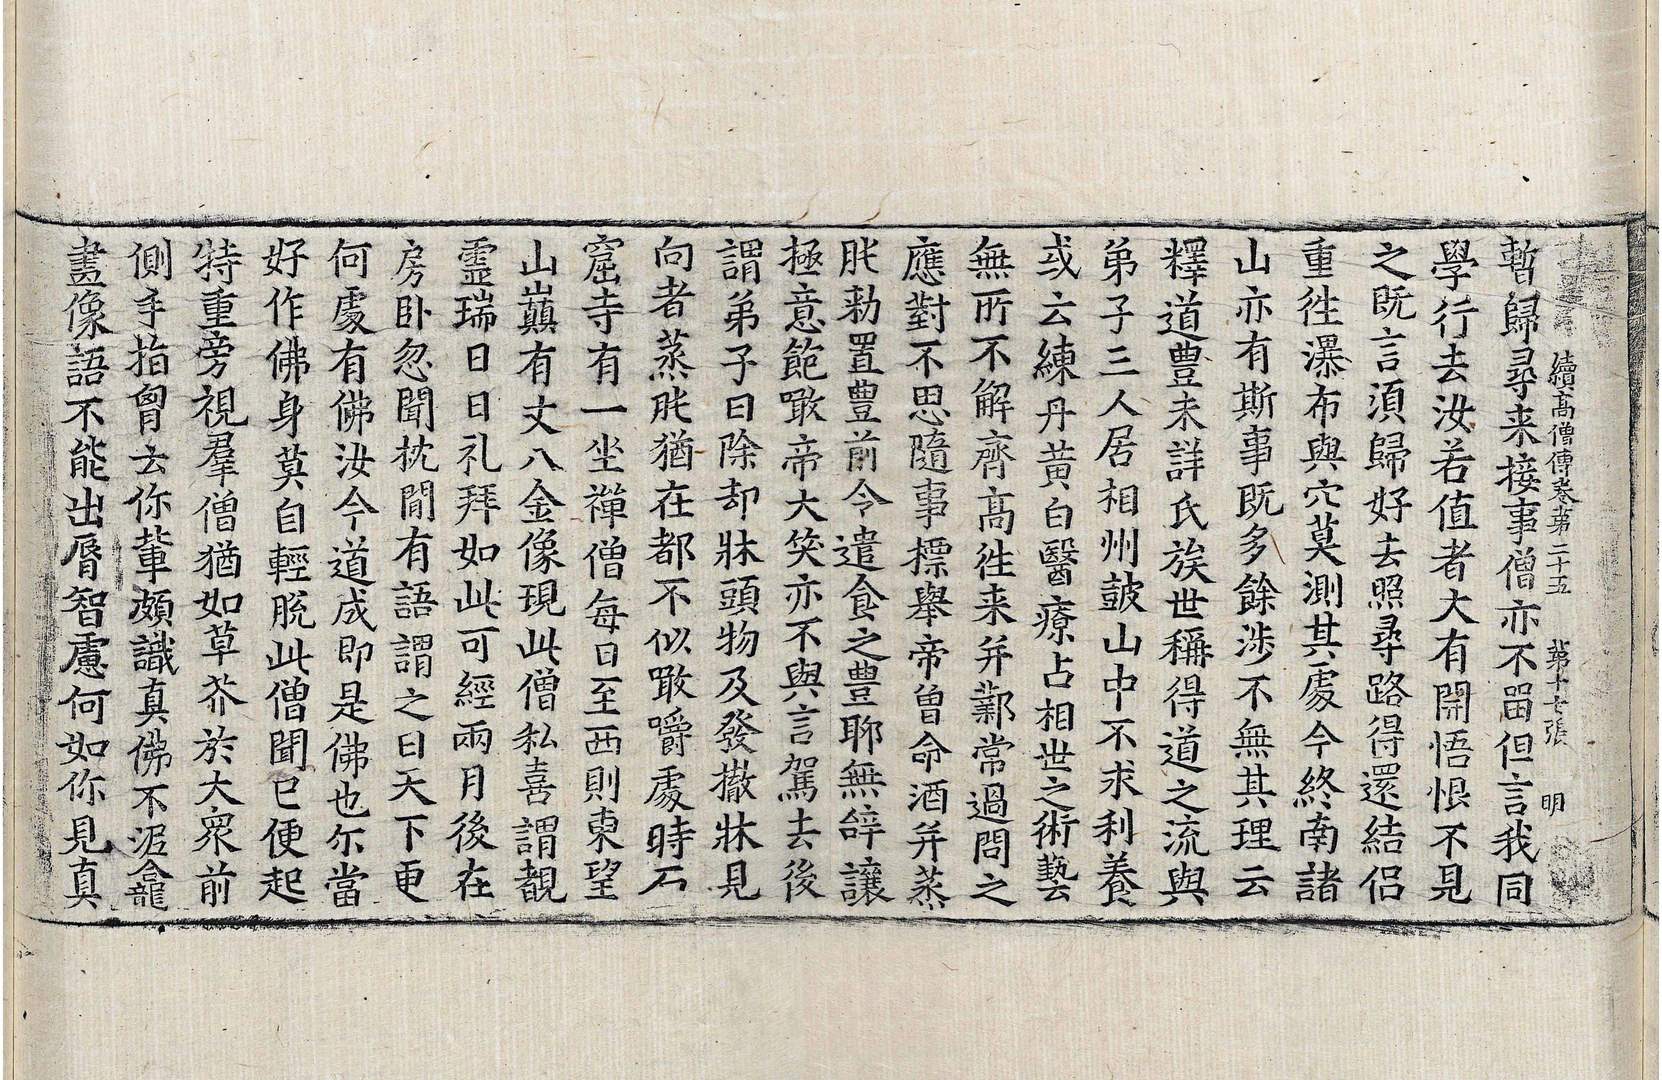 續高僧傳卷第二十五　第十七張　明
暫歸尋来接事僧亦不畱但言我同
學行去汝若值者大有開悟恨不見
之既言須歸好去照尋路得還結侣
重徃瀑布與穴莫測其處今終南諸
山亦有斯事既多餘涉不無其理云
釋道豊未詳氏族世稱得道之流與
弟子三人居相州鼓山中不求利養
或云練丹黄白醫療占相世之術藝
無所不解齊髙徃来并鄴常過問之
應對不思隨事標舉帝曾命酒并蒸
肫勑置豊前令遣食之豊聊無辝讓
極意飽噉帝大笑亦不與言駕去後
謂弟子曰除却牀頭物及發撤牀見
向者蒸肫猶在都不似噉嚼處時石
窟寺有一坐禪僧每日至西則東望
山巔有丈八金像現此僧私喜謂覩
霊瑞日日礼拜如此可經兩月後在
房卧忽聞枕間有語謂之曰天下更
何處有佛汝今道成即是佛也尔當
好作佛身莫自輕脱此僧聞已便起
特重旁視羣僧猶如草芥於大衆前
側手指胷云你輩頗識真佛不泥龕
畫像語不能出脣智慮何如你見真